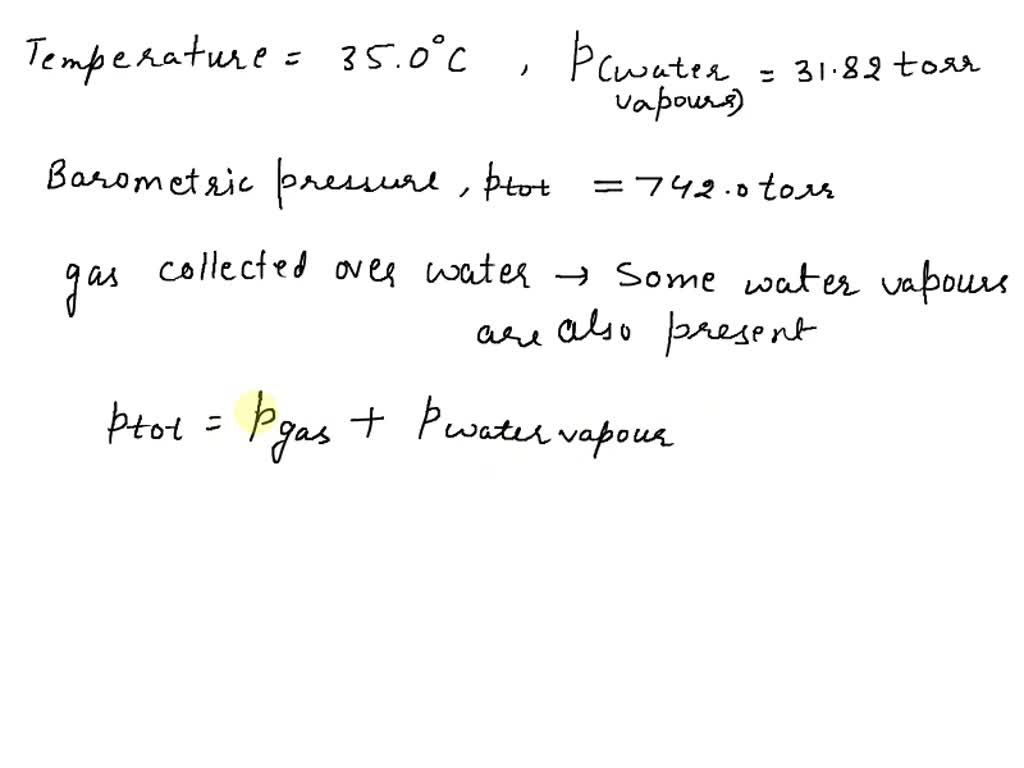 Temperature = 35.0°C , P(water vapours) = 31.82 torr
Barometric pressure, ptot = 742.0 torr
gas collected over water → Some water vapours
are also present
ptot = pgas + pwater vapour